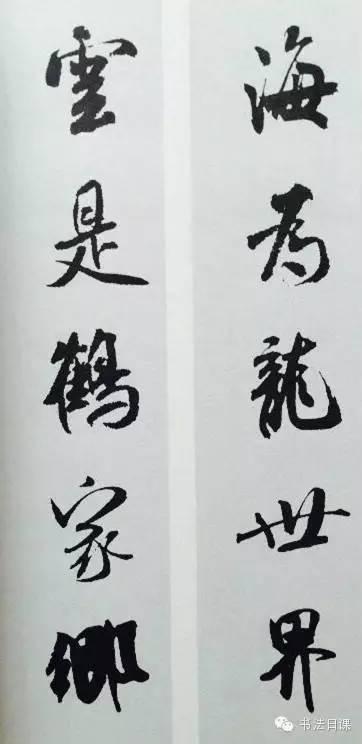 海为龍世界
雲是鶴家鄉
书法日课